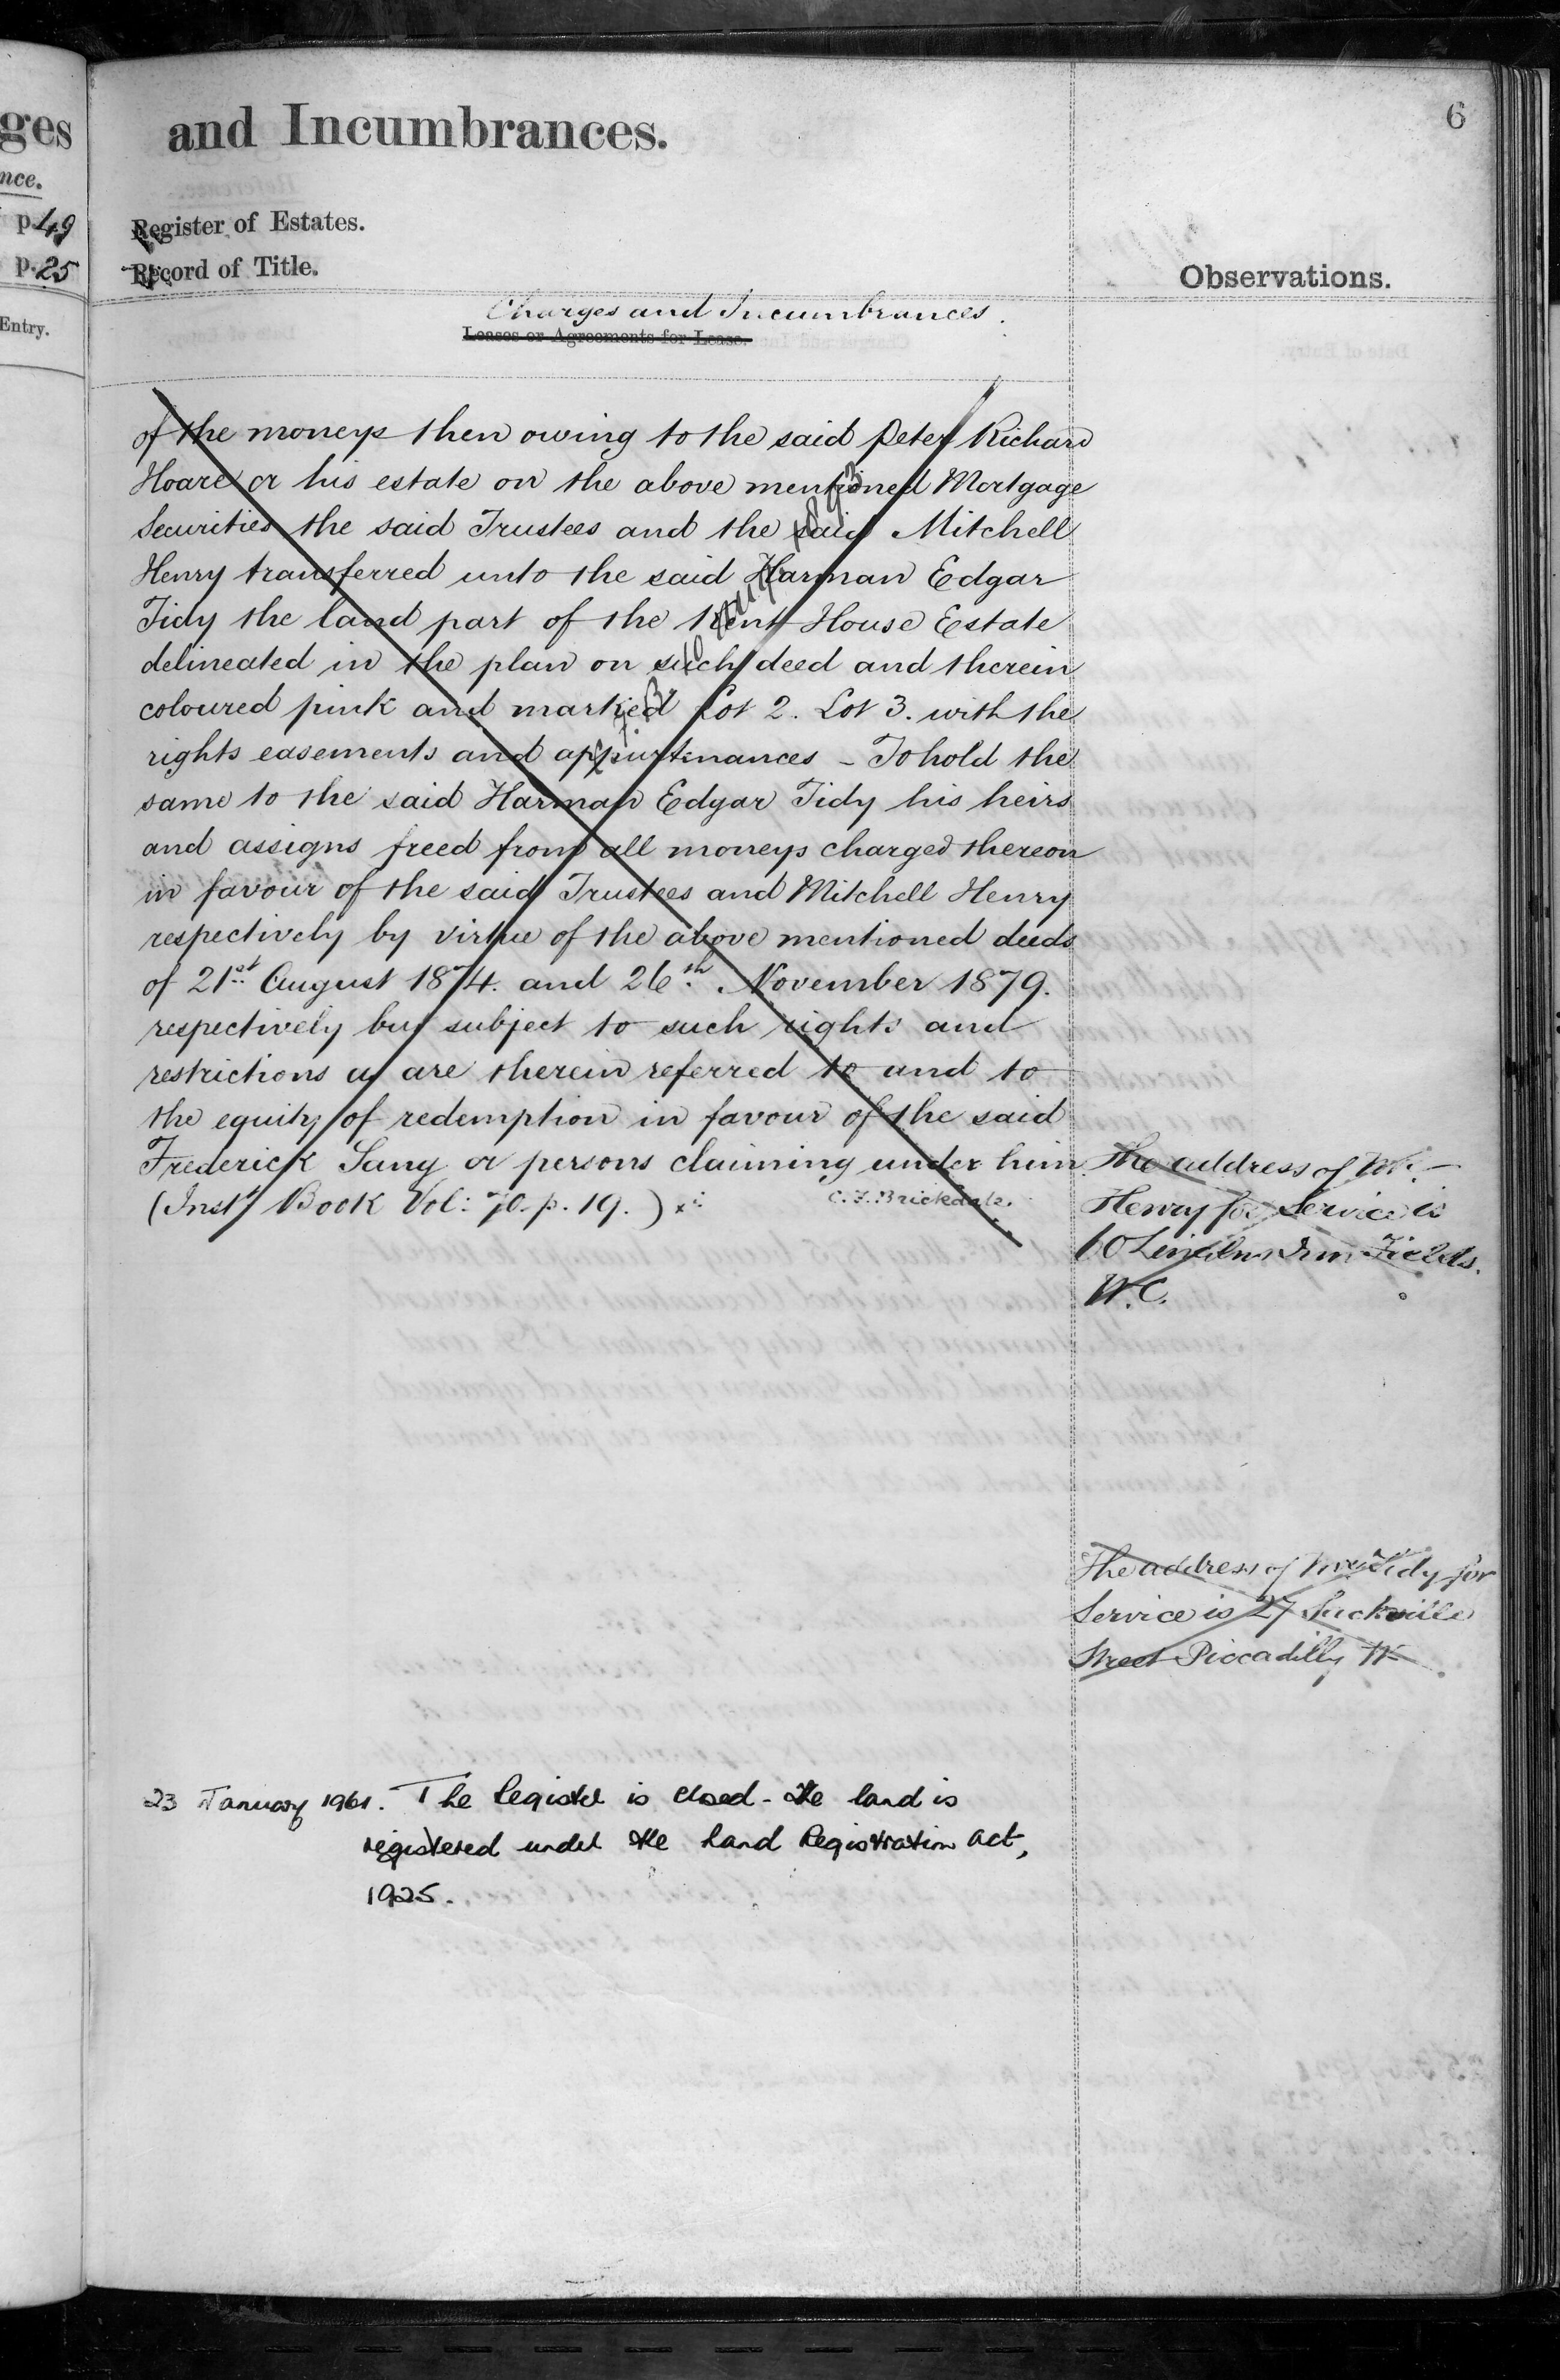 ges
nce.
p. 49
p. 25
Entry.
and Incumbrances.
6
Register of Estates.
Record of Title.
Observations.
Charges and Incumbrances.
Leases or Agreements for Lease.
of the moneys then owing to the said Peter Richard
Hoare or his estate on the above mentioned Mortgage
Securities the said Trustees and the said Mitchell
Henry transferred unto the said Harman Edgar
Tidy the land part of the Kent House Estate
delineated in the plan on such deed and therein
coloured pink and marked Lot 2. Lot 3. with the
rights easements and appurtenances - To hold the
same to the said Harman Edgar Tidy his heirs
and assigns freed from all moneys charged thereon
in favour of the said Trustees and Mitchell Henry
respectively by virtue of the above mentioned deeds
of 21st August 1874. and 26th November 1879.
respectively but subject to such rights and
restrictions as are therein referred to and to
the equity of redemption in favour of the said
Frederick Sang or persons claiming under him
(Inst Book Vol: 70. p. 19.)
C. F. Brickdale.
The address of Mr.
Henry for Service is
60 Lincolns Inn Fields.
W.C.
The address of Mr Tidy for
Service is 27 Sackville
Street Piccadilly W
23 January 1961. The Register is closed - the land is
registered under the Land Registration Act,
1925.